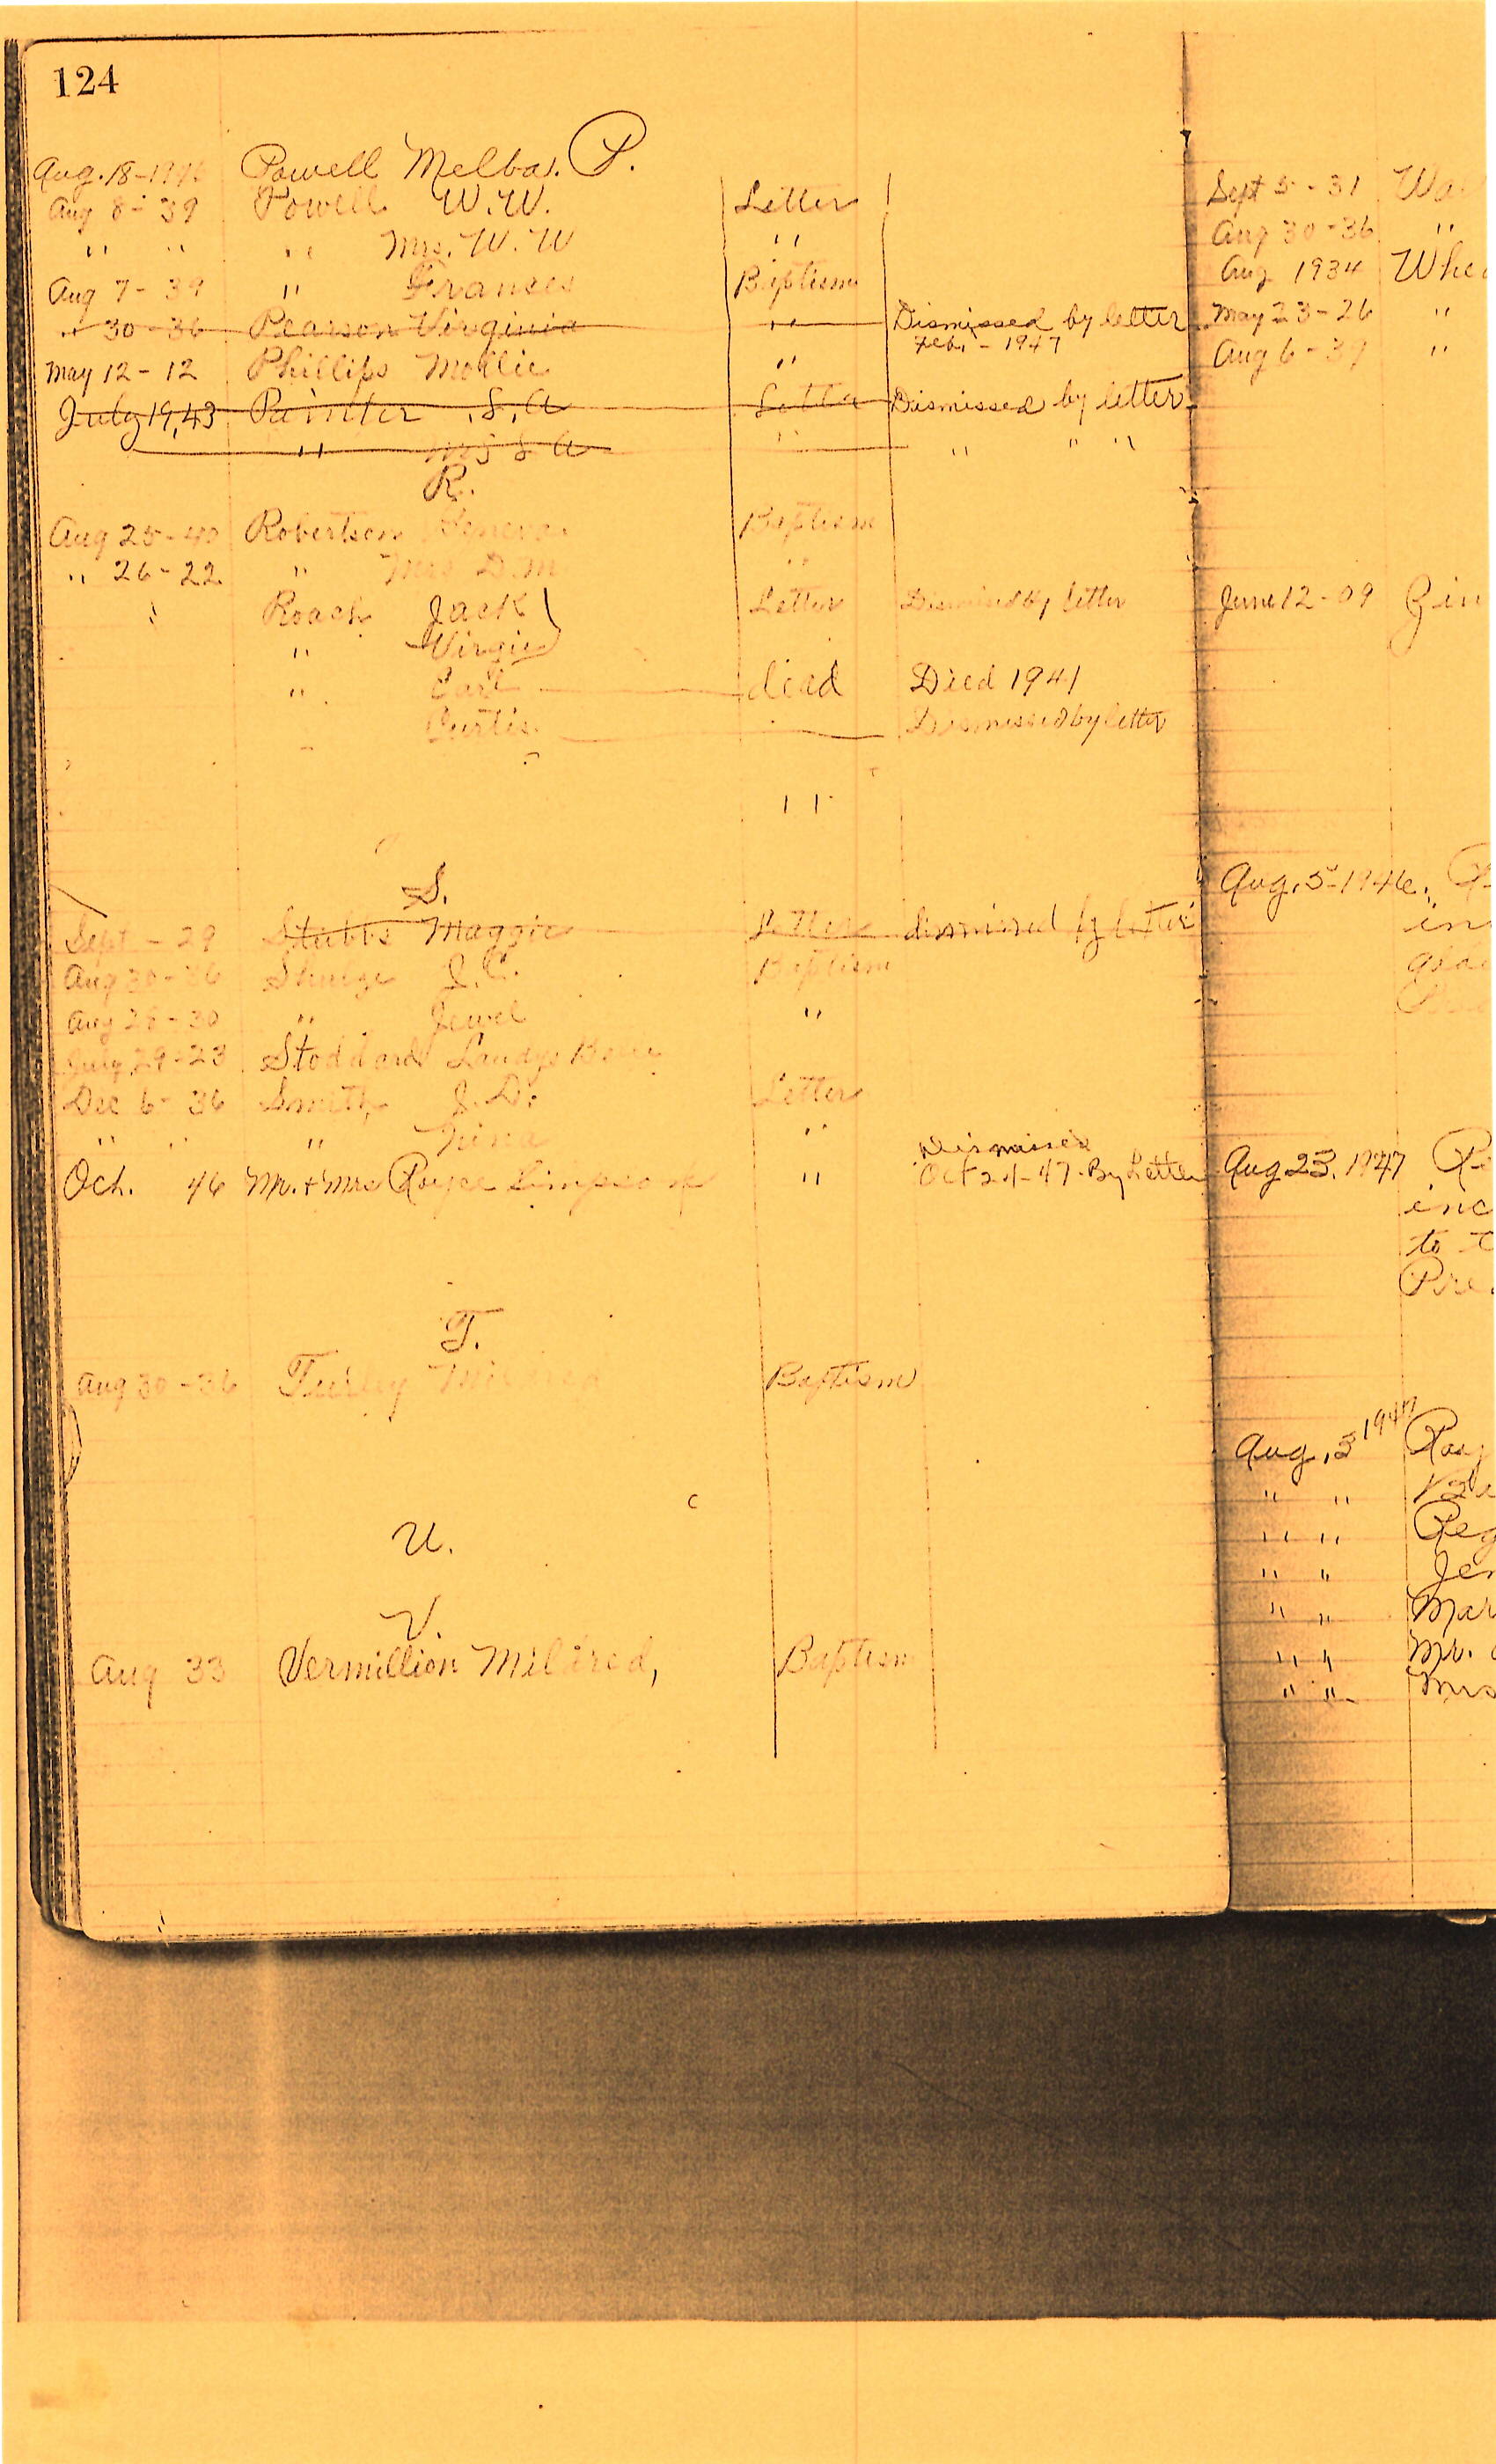 124
P.
Aug. 18-1946 Powell Melba.
Aug 8 - 39 Powell W. W. Letter
" " " Mrs. W. W " 
Aug 7 - 39 " Frances Baptism
" 30-36 Pearson Virginia " Dismissed by letter
Feb. - 1947
May 12 - 12 Phillips Mollie "
July 19, 43 Painter S. A Letter Dismissed by letter
" Mrs S A " " " "
R.
Aug 25-40 Robertson Geneva Baptism
" 26-22 " Mrs D. M "
Roach Jack Letter Dismissed by letter
" Virgie
" Earl dead Died 1941
Curtis Dismissed by letter
" 
S.
Sept - 29 Stubbs Maggie Letter dismissed by letter
Aug 30-36 J. C. Baptism
Aug 28-30 " Jewel "
July 29-23 Stoddard
Dec 6-36 Smith J. D. Letter
" " " Nina "
Dismissed
Oct. 46 Mr. + Mrs Royce Simpson " Oct 24-47-By Letter
T.
Aug 30-36 Turley Mildred Baptism
U.
V.
Aug 33 Vermillion Mildred, Baptism
Sept 5-31 Wa
Aug 30-36 "
Aug 1934 Whe
May 23-26 "
Aug 6-39 "
June 12-09 Gin
Aug. 5-1946. R
in
gla
Aug 23, 1947 Re
inc
to t
Pre.
Aug. 3 1947 Ray
" "
" " Reg
" " Jer
" " Mar
" " Mr.
" " Mrs